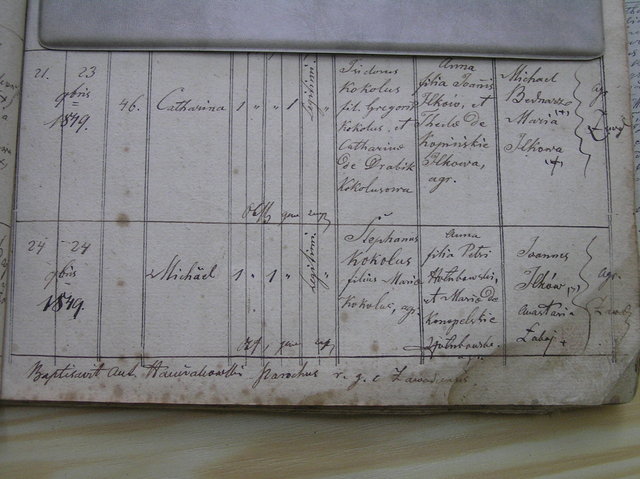 21. 23
9bris
1849.
46.
Catharina
1 " " 1
Isidorus
Kokolus
fil. Gregorii
Kokolus, et
Catharinæ
de Drabik
Kokolusowa
Anna
filia Joannis
Ilkow, et
Theclæ de
Kopińskie
Ilkowa,
agr.
Michael
Bednarz
Maria (+)
Ilkowa
(+)
agr.
24 24
9bris
1849.
Michäel
1 " 1 "
legitim.
Stephanus
Kokolus
filius Mariæ
Kokolus, agr.
Anna
filia Petri
Hołubowski,
et Mariæ de
Konopelskie
Hołubowska
Joannes
Ilków, (+)
Anastasia
Łabaj +
agr.
Baptisavit Ant. parochus r. g. c